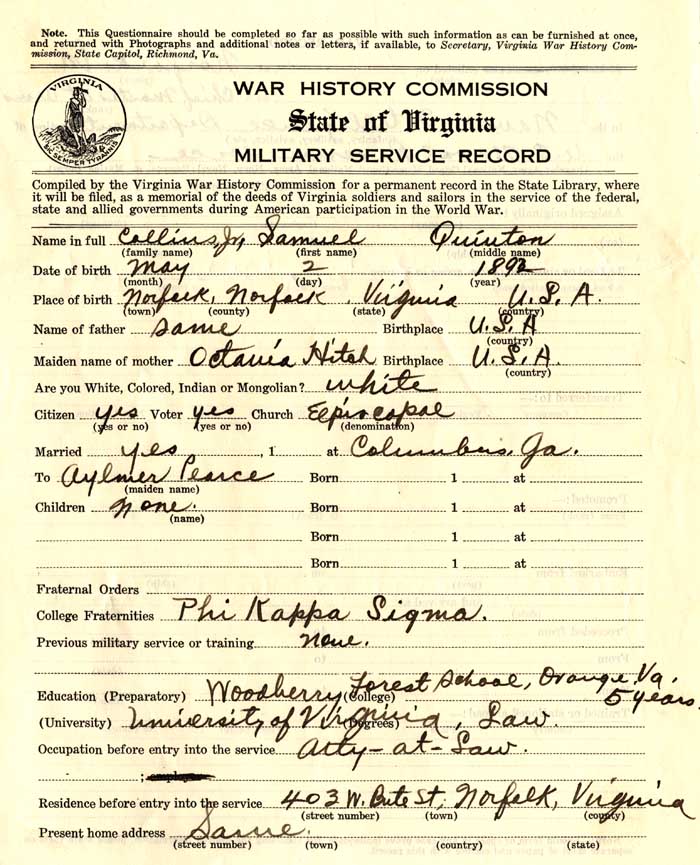 Note. This Questionnaire should be completed so far as possible with such information as can be furnished at once,
and returned with Photographs and additional notes or letters, if available, to Secretary, Virginia War History Com-
mission, State Capitol, Richmond, Va.
VIRGINIA
SIC SEMPER TYRANNIS
WAR HISTORY COMMISSION
State of Virginia
MILITARY SERVICE RECORD
Compiled by the Virginia War History Commission for a permanent record in the State Library, where
it will be filed, as a memorial of the deeds of Virginia soldiers and sailors in the service of the federal,
state and allied governments during American participation in the World War.
Name in full Collins, Jr., Samuel Quinton
(family name) (first name) (middle name)
Date of birth May 2 1892
(month) (day) (year)
Place of birth Norfolk, Norfolk Virginia U.S.A.
(town) (county) (state) (country)
Name of father Same Birthplace U.S.A
(country)
Maiden name of mother Octavia Hitch Birthplace U.S.A.
(country)
Are you White, Colored, Indian or Mongolian? White
Citizen yes Voter yes Church Episcopal
(yes or no) (yes or no) (denomination)
Married yes , 1 at Columbus, Ga.
To Aylmer Pearce Born 1 at
(maiden name)
Children None. Born 1 at
(name)
Born 1 at
Born 1 at
Fraternal Orders
College Fraternities Phi Kappa Sigma.
Previous military service or training None.
Education (Preparatory) Woodberry Forest School, Orange, Va.
(College) 5 years.
(University) University of Virginia, Law.
(Degrees)
Occupation before entry into the service Atty-at-Law.
;
Residence before entry into the service 403 W. Bute St., Norfolk, Virginia
(street number) (town) (county)
Present home address Same.
(street number) (town) (country) (state)